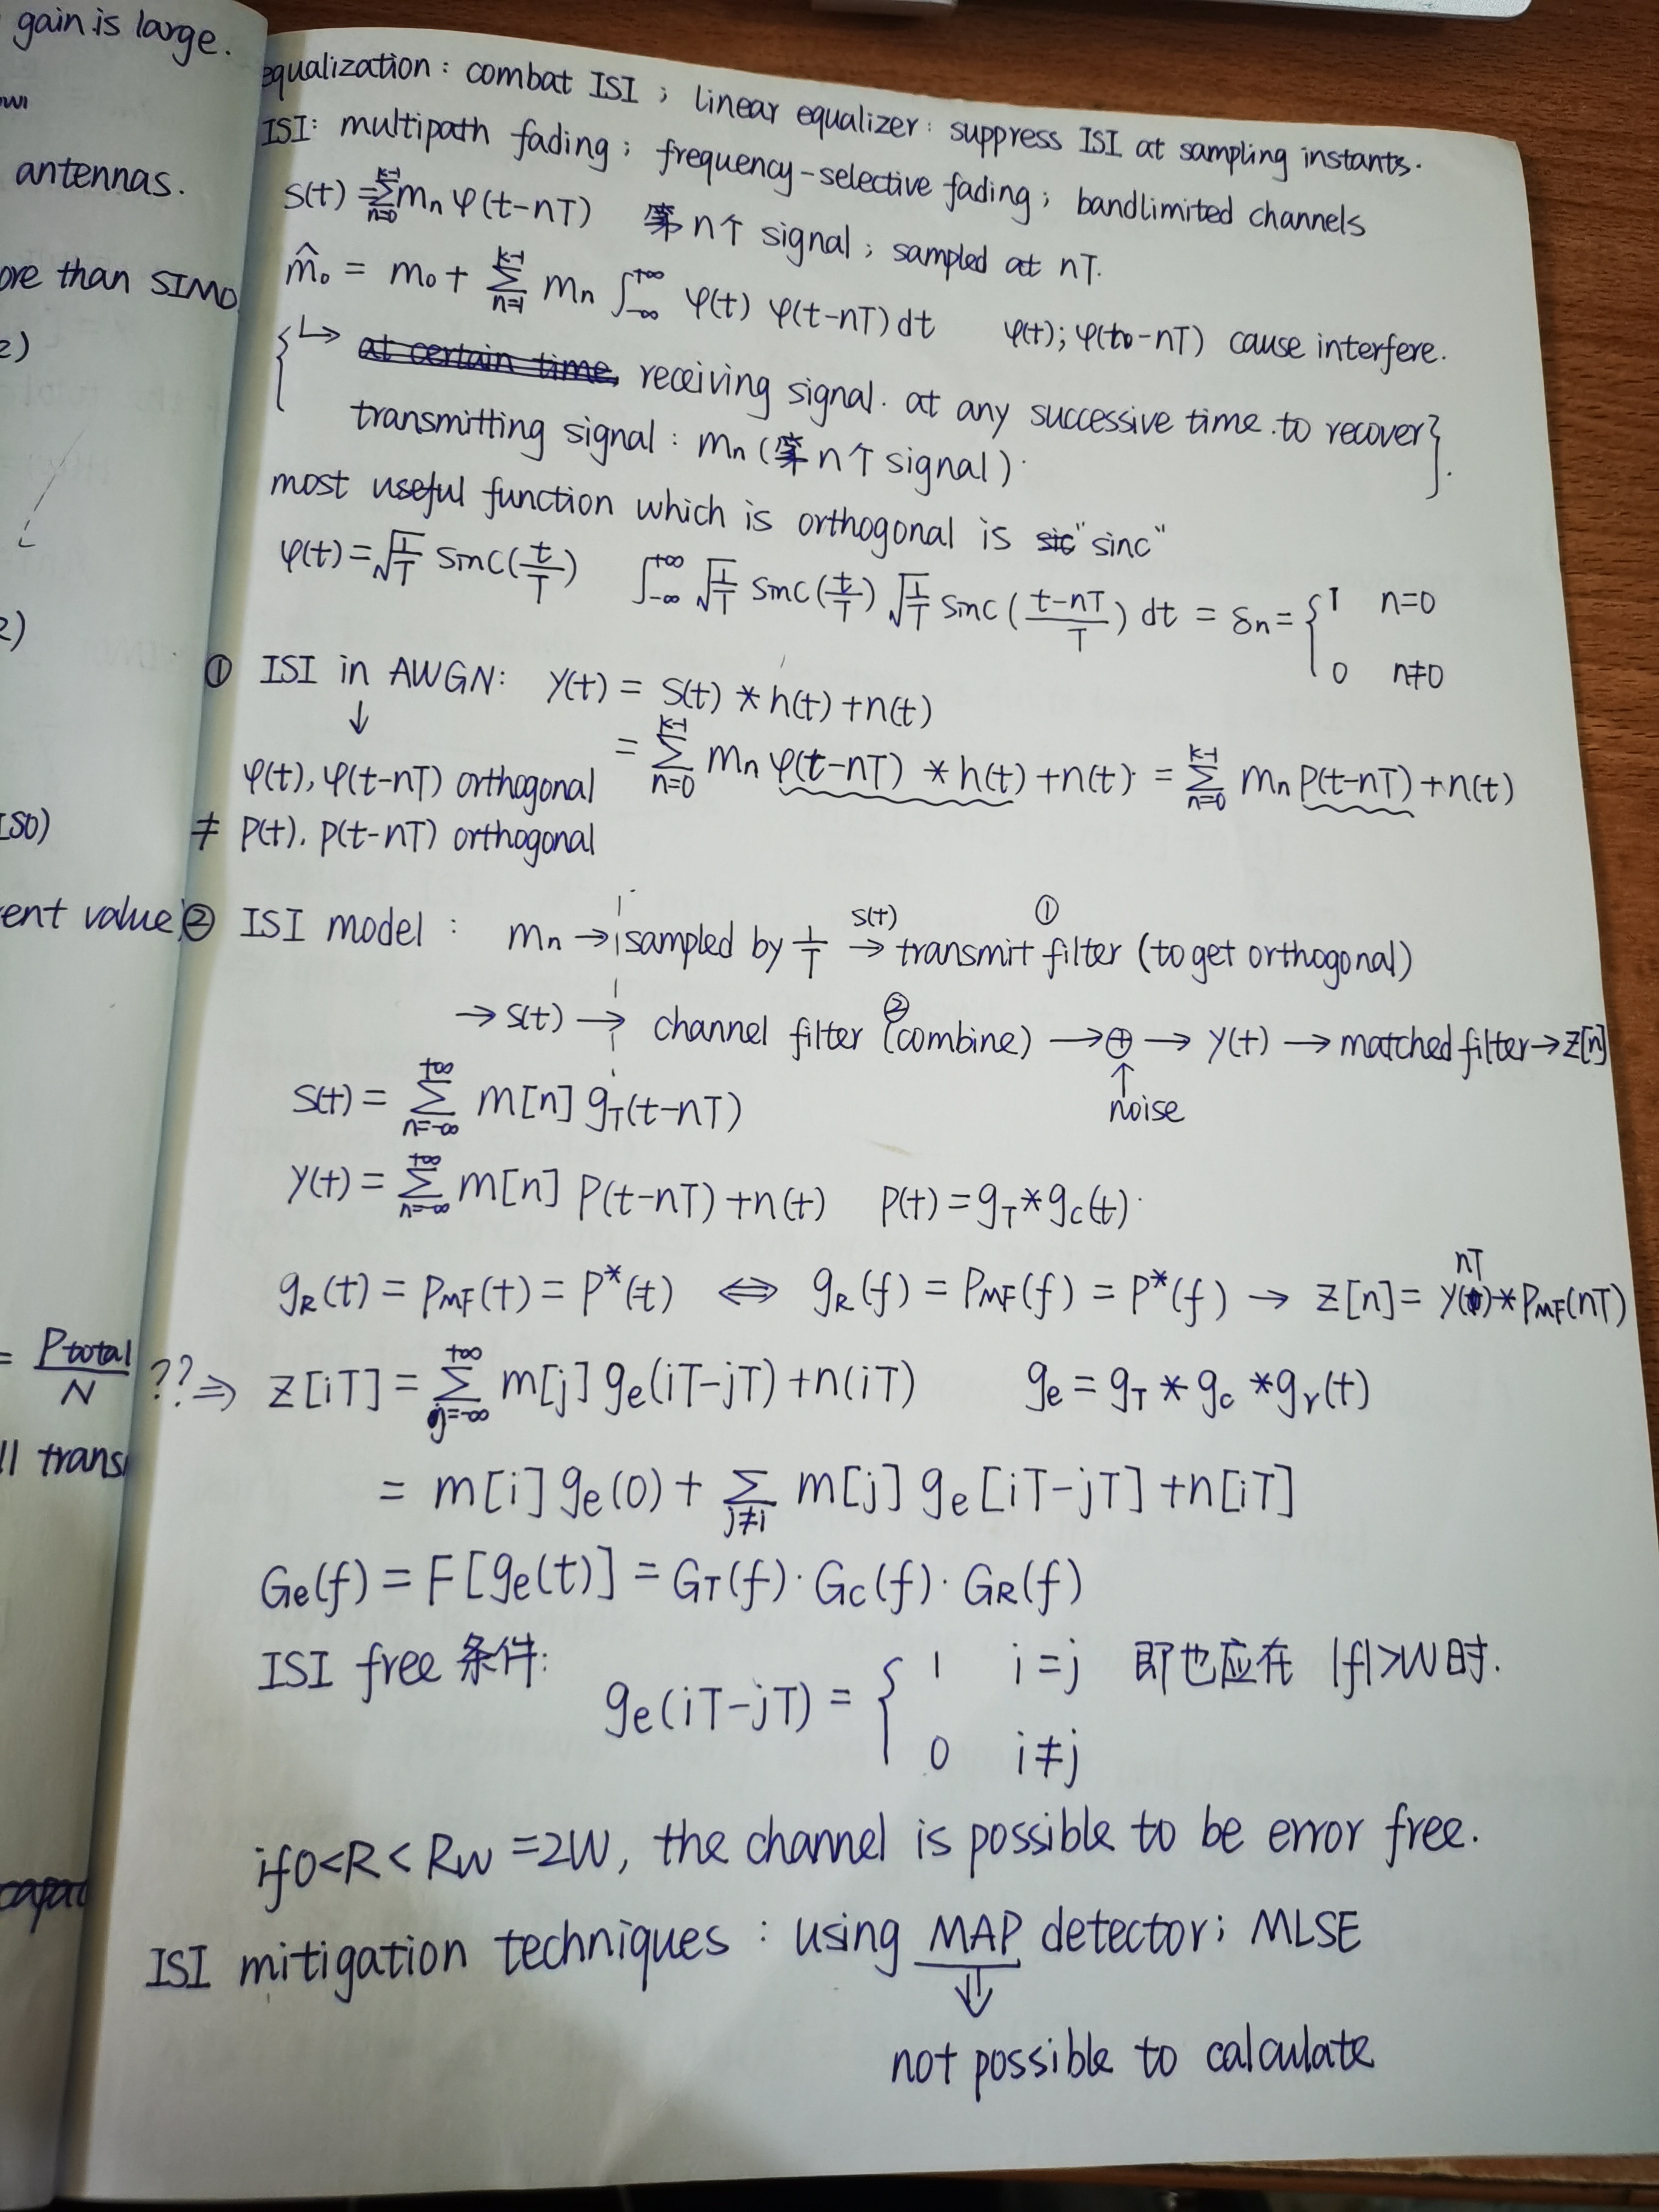 gain is large.
antennas.
ore than SIMO
2)
2)
ISO)
ent value)
= Ptotal / N
ll trans
equalization: combat ISI ; linear equalizer: suppress ISI at sampling instants.
ISI: multipath fading ; frequency-selective fading ; bandlimited channels
s(t) = Σ_{n=0}^{k-1} mn φ(t-nT) 第n个 signal ; sampled at nT.
m̂₀ = m₀ + Σ_{n=1}^{k-1} mn ∫_{-∞}^{+∞} φ(t) φ(t-nT) dt φ(t); φ(t-nT) cause interfere.
{ ↳ at certain time, receiving signal. at any successive time. to recover }.
transmitting signal : mn (第n个 signal).
most useful function which is orthogonal is sic "sinc"
φ(t) = √(1/T) sinc(t/T) ∫_{-∞}^{+∞} √(1/T) sinc(t/T) √(1/T) sinc((t-nT)/T) dt = δn = { 1 n=0
0 n≠0
① ISI in AWGN: y(t) = s(t) * h(t) + n(t)
↓
= Σ_{n=0}^{k-1} mn φ(t-nT) * h(t) + n(t) = Σ_{n=0}^{k-1} mn p(t-nT) + n(t)
φ(t), φ(t-nT) orthogonal
≠ p(t), p(t-nT) orthogonal
② ISI model : mn → sampled by 1/T →s(t) transmit filter ① (to get orthogonal)
→ s(t) → channel filter ② (combine) → ⊕ → y(t) → matched filter → z[n]
↑
noise
s(t) = Σ_{n=-∞}^{+∞} m[n] gT(t-nT)
y(t) = Σ_{n=-∞}^{+∞} m[n] p(t-nT) + n(t) p(t) = gT * gc(t)
gR(t) = PMF(t) = p*(t) ⇔ gR(f) = PMF(f) = P*(f) → z[n] = y(nT) * PMF(nT)
??⇒ z[iT] = Σ_{j=-∞}^{+∞} m[j] ge(iT-jT) + n(iT) ge = gT * gc * gr(t)
= m[i] ge(0) + Σ_{j≠i} m[j] ge[iT-jT] + n[iT]
Ge(f) = F[ge(t)] = GT(f)·Gc(f)·GR(f)
ISI free 条件:
ge(iT-jT) = { 1 i=j 即也应在 |f|>W时.
0 i≠j
if 0<R<Rw=2W, the channel is possible to be error free.
ISI mitigation techniques : using MAP detector; MLSE
⇓
not possible to calculate